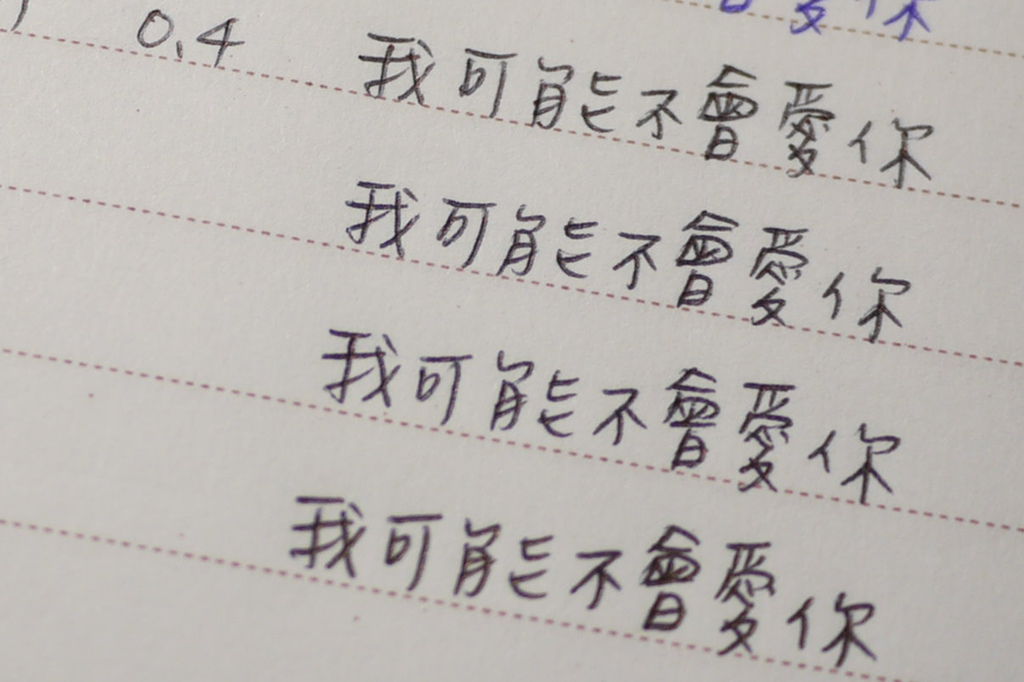 愛你
0.4 我可能不會愛你
我可能不會愛你
我可能不會愛你
我可能不會愛你